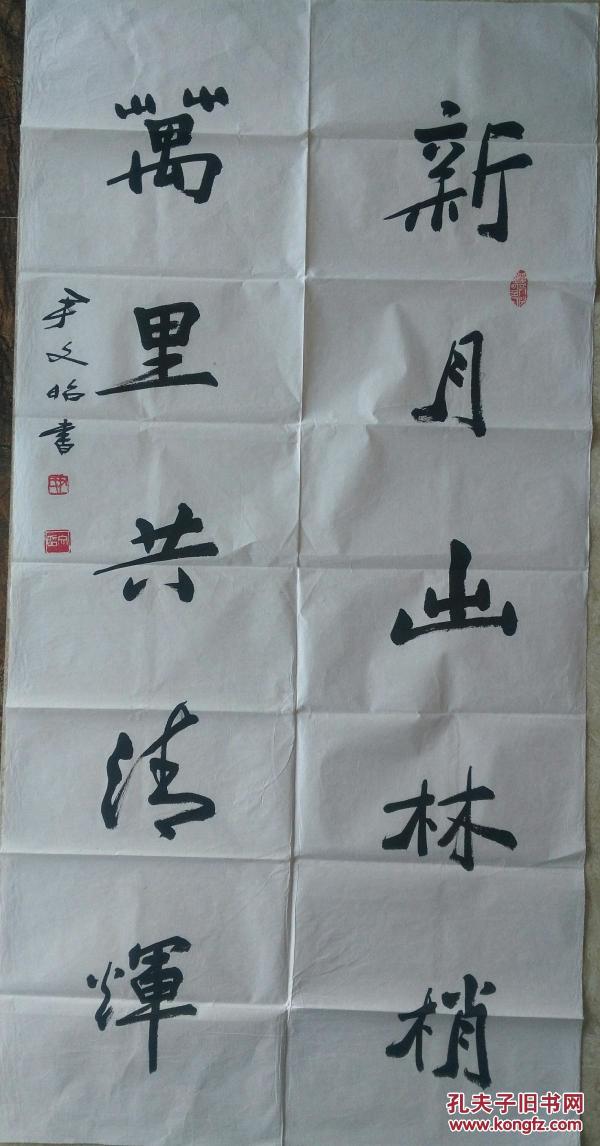 新月出林梢
萬里共清輝
尹文昭書
孔夫子旧书网
www.kongfz.com